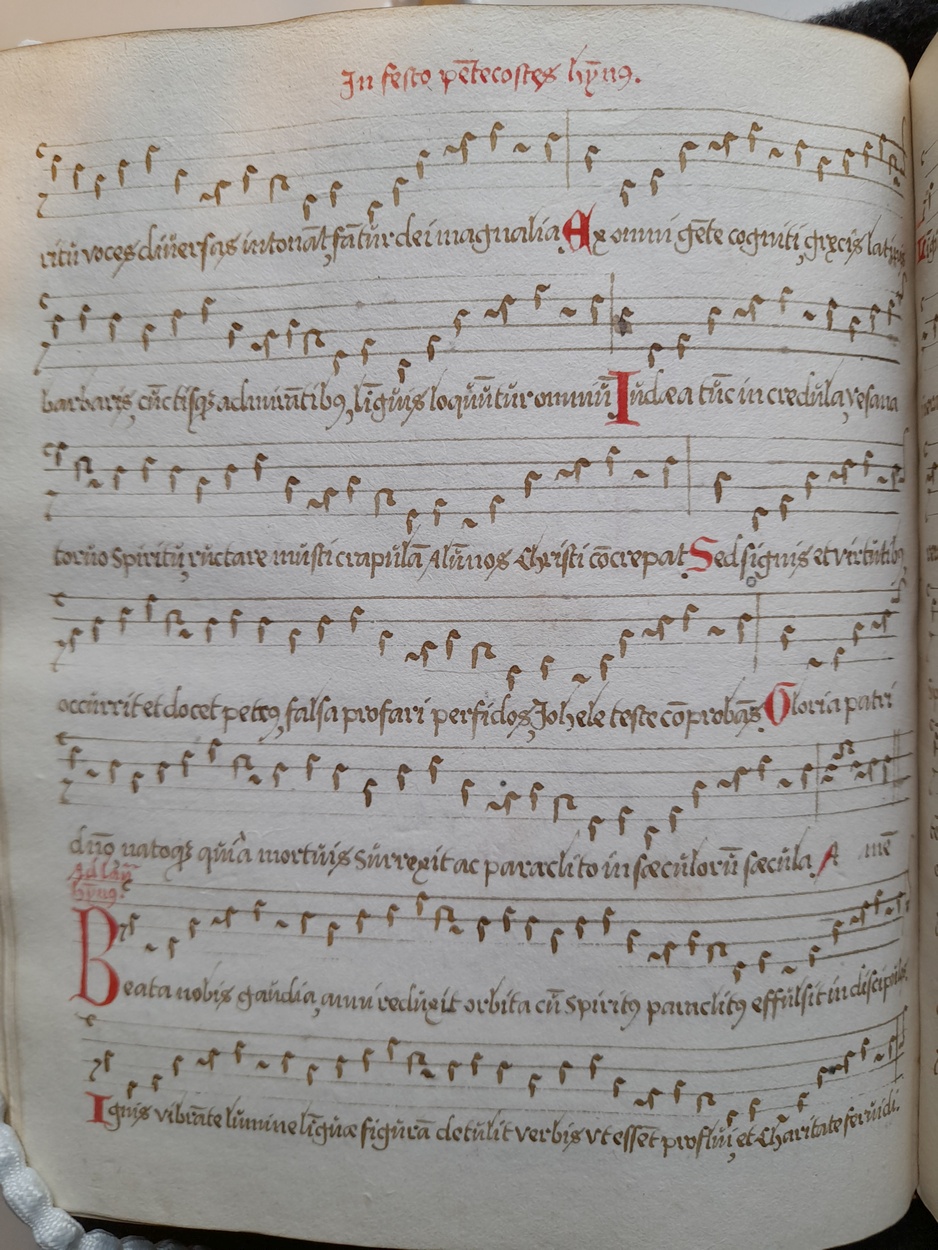 In festo pētecostes hȳnꝰ.
ritū voces diversas intonāt, fātur dei magnalia Ex omni gēte cogniti, græcis latinis
barbaris, cūctisqꝫ admirātibꝰ, līguis loquūtur omniū Iudæa tūc incredula, vesana
torvo Spiritu, ructare musti crapulā Alūnos Christi cōcrepat Sed signis et virtutibꝰ
occurrit et docet petrꝰ, falsa profari perfidos, Johele teste cōprobās Gloria patri
dño natoqꝫ qui a mortuis Surrexit ac paraclito in sæculorū sæcula. A mē
Ad lau. hȳnꝰ.
Beata nobis gaudia, anni reduxit orbita cū Spiritꝰ paraclitꝰ effulsit in discipulos
Ignis vibrāte lumine līguæ figurā detulit verbis vt essēt proflui, et Charitate fervidi.